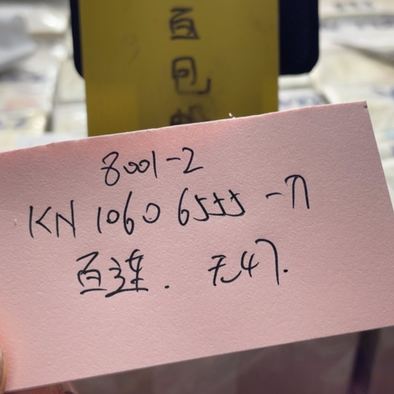 百包
8001-2
KN 1060 6555-17
百连. 无47.